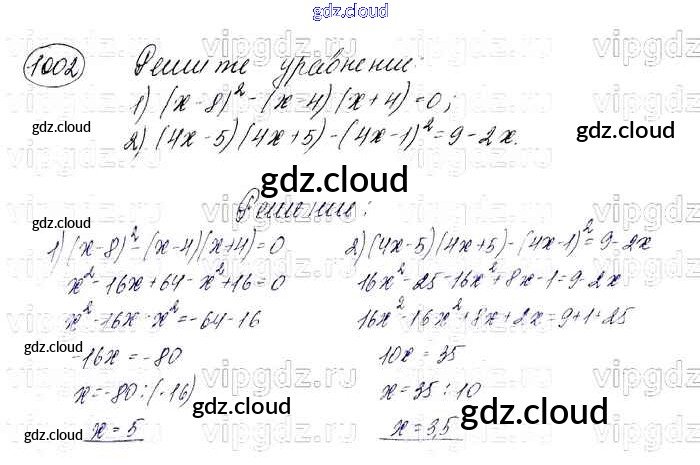 gdz.cloud
1002 Решите уравнения:
1) (x-8)² - (x-4)(x+4)=0;
2) (4x-5)(4x+5)-(4x-1)²=9-2x.
gdz.cloud
gdz.cloud
gdz.cloud
Решение:
gdz.cloud
1) (x-8)²-(x-4)(x+4)=0
x²-16x+64-x²+16=0
x²-16x-x²=-64-16
-16x=-80
x=-80:(-16)
x=5
2) (4x-5)(4x+5)-(4x-1)²=9-2x
16x²-25-16x²+8x-1=9-2x
16x²-16x²+8x+2x=9+1+25
10x=35
x=35:10
x=3,5
gdz.cloud
gdz.cloud
gdz.cloud
gdz.cloud
gdz.cloud
vipgdz.ru